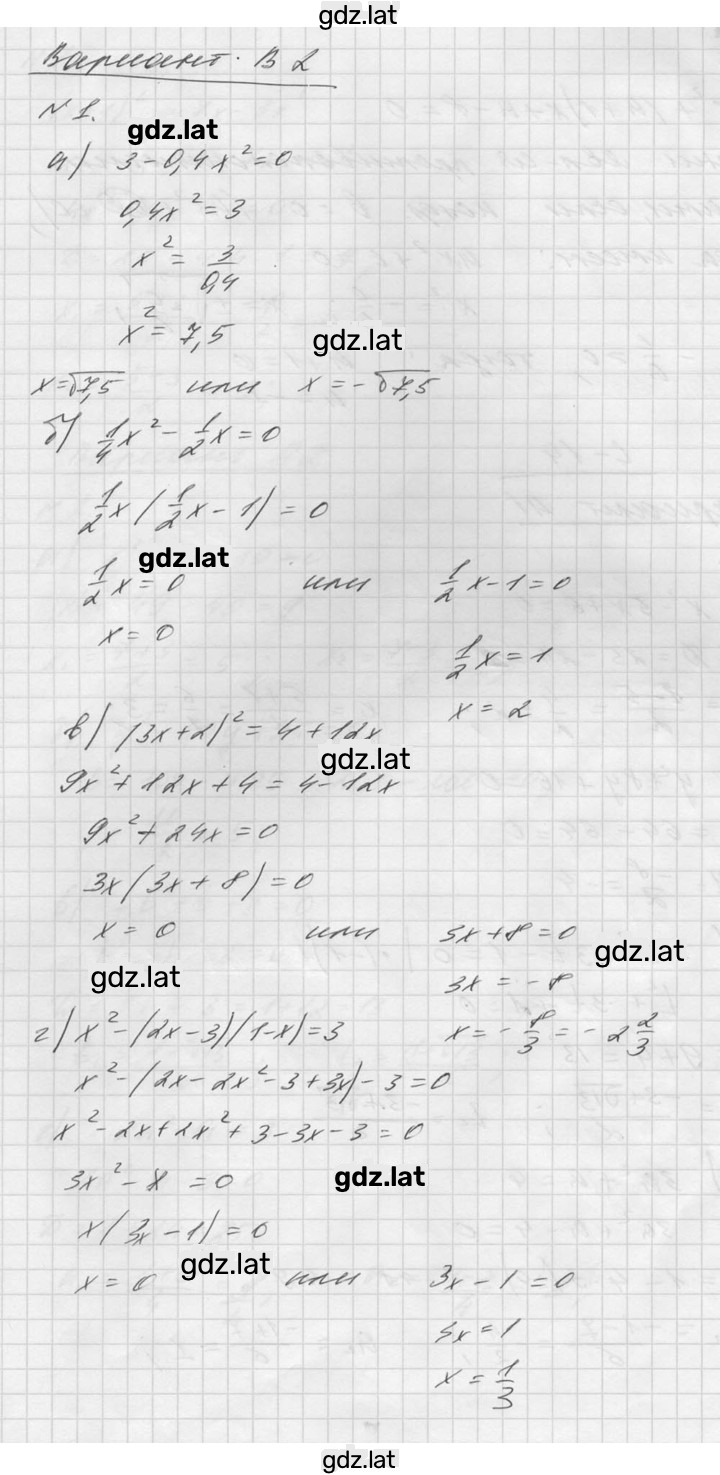 gdz.lat
Вариант В2
№1.
gdz.lat
а) 3-0,4x²=0
0,4x²=3
x²= 3/0,4
x²= 7,5
gdz.lat
x=√7,5 или x=-√7,5
б) 1/4x²-1/2x=0
1/2x(1/2x-1)=0
gdz.lat
1/2x=0 или 1/2x-1=0
x=0
1/2x=1
x=2
в) (3x+2)²=4+12x
gdz.lat
9x²+12x+4=4-12x
9x²+24x=0
3x(3x+8)=0
x=0 или 3x+8=0
gdz.lat
gdz.lat
3x=-8
г) x²-(2x-3)(1-x)=3 x=-8/3=-2 2/3
x²-(2x-2x²-3+3x)-3=0
x²-2x+2x²+3-3x-3=0
3x²-x=0
gdz.lat
x(3x-1)=0
gdz.lat
x=0 или 3x-1=0
3x=1
x=1/3
gdz.lat